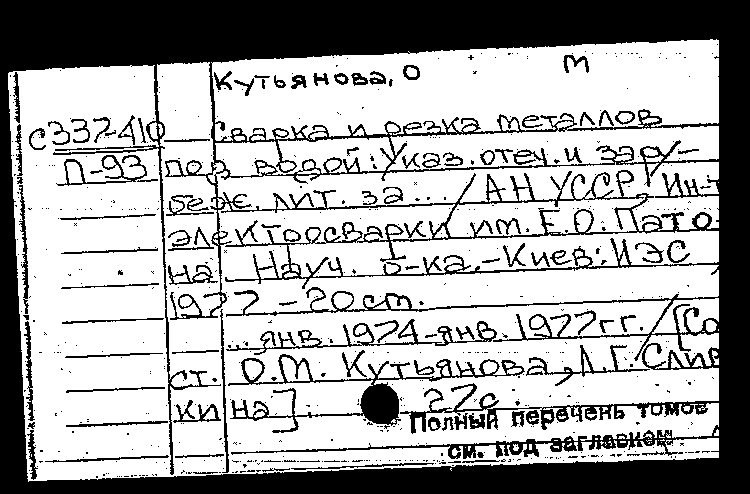 Кутьянова, О М
с332410 Сварка и резка металлов
П-93 под водой: Указ. отеч. и зару-
беж. лит. за... / АН УССР, Ин-т
электросварки им. Е.О. Пато-
на. Науч. б-ка. - Киев: ИЭС,
1977 - 20 см.
... янв. 1974-янв. 1977 гг. / [Со
ст. О.М. Кутьянова, Л.Г. Слив
кина]. 27с.
Полный перечень томов
см. под заглавием